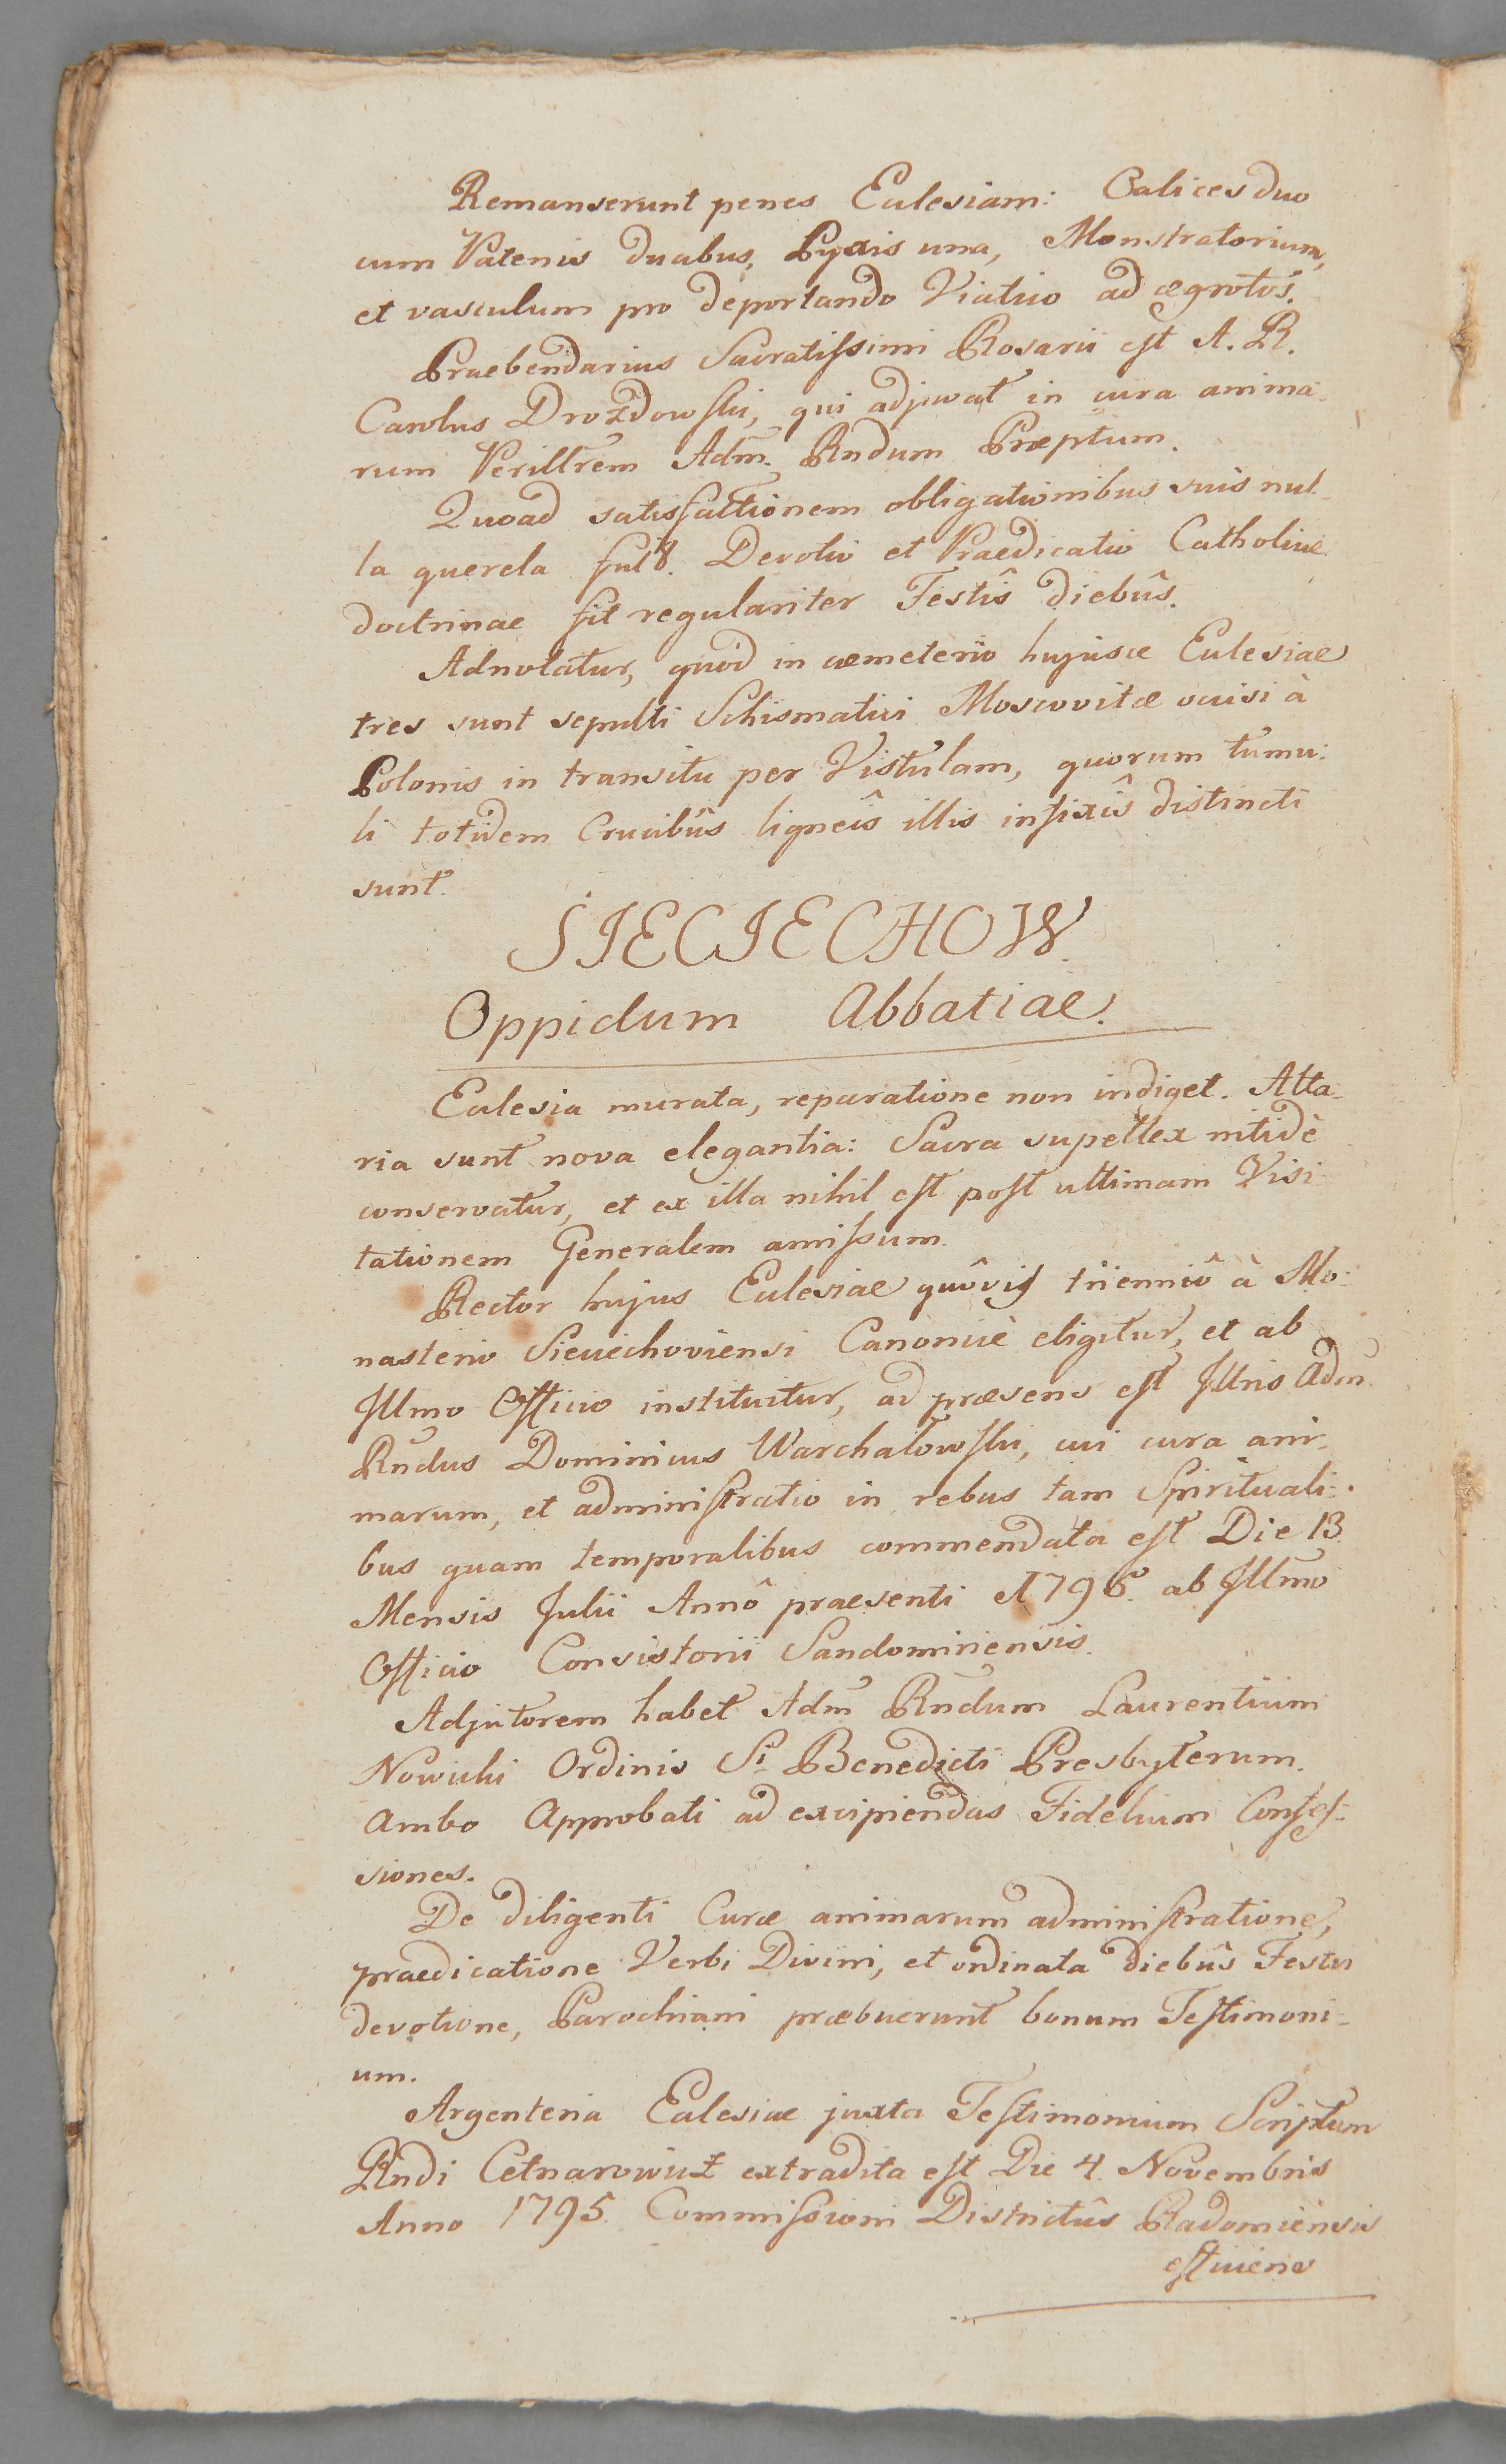 Remanserunt penes Ecclesiam: Calices duo
cum Patenis duabus, Pyxis una, Monstratorium,
et vasculum pro deportando Viatico ad ægrotos.
Praebendarius Sacratissimi Rosarii est A. R.
Carolus Drożdowski, qui adjuvat in cura anima-
rum Perillrem Adm. Rndum Præptum.
Quoad satisfactionem obligationibus suis nul-
la querela fuit. Devotio et Praedicatio Catholicæ
doctrinae fit regulariter Festîs diebûs.
Adnotatur, quod in cæmeterio hujusce Ecclesiae
tres sunt sepulti Schismatici Moscovitæ occisi à
Polonis in transitu per Vistulam, quorum tumu:
li totidem Crucibûs ligneîs illis infixîs distincti
sunt.
SIECIECHOW.
Oppidum Abbatiae.
Ecclesia murata, reparatione non indiget. Alta-
ria sunt nova elegantia: Sacra supellex nitidè
conservatur, et ex illa nihil est post ultimam Visi-
tationem Generalem amissum.
Rector hujus Ecclesiae quôvis trienniô à Mo:
nasterio Sieciechoviensi Canonicè eligitur, et ab
Illmo Officio instituitur, ad præsens est Illris Adm
Rndus Dominicus Warchałowski, cui cura ani-
marum, et administratio in rebus tam Spirituali:
bus quam temporalibus commendata est Die 13
Mensis Julii Annô praesenti 1796º. ab Illmo
Officio Consistorii Sandomiriensis.
Adjutorem habet Adm Rndum Laurentium
Nowicki Ordinis Sı Benedicti Presbyterum.
Ambo Approbati ad excipiendas Fidelium Confes:
siones.
De diligenti Curæ animarum administratione,
praedicatione Verbi Divini, et ordinata diebûs Festis
devotione, Parochiani præbuerunt bonum Testimoni-
um.
Argenteria Ecclesiae juxta Testimonium Scriptum
Rndi Cetnarowicz extradita est Die 4 Novembris
Anno 1795. Commissioni Districtûs Radomiensis
efficiens